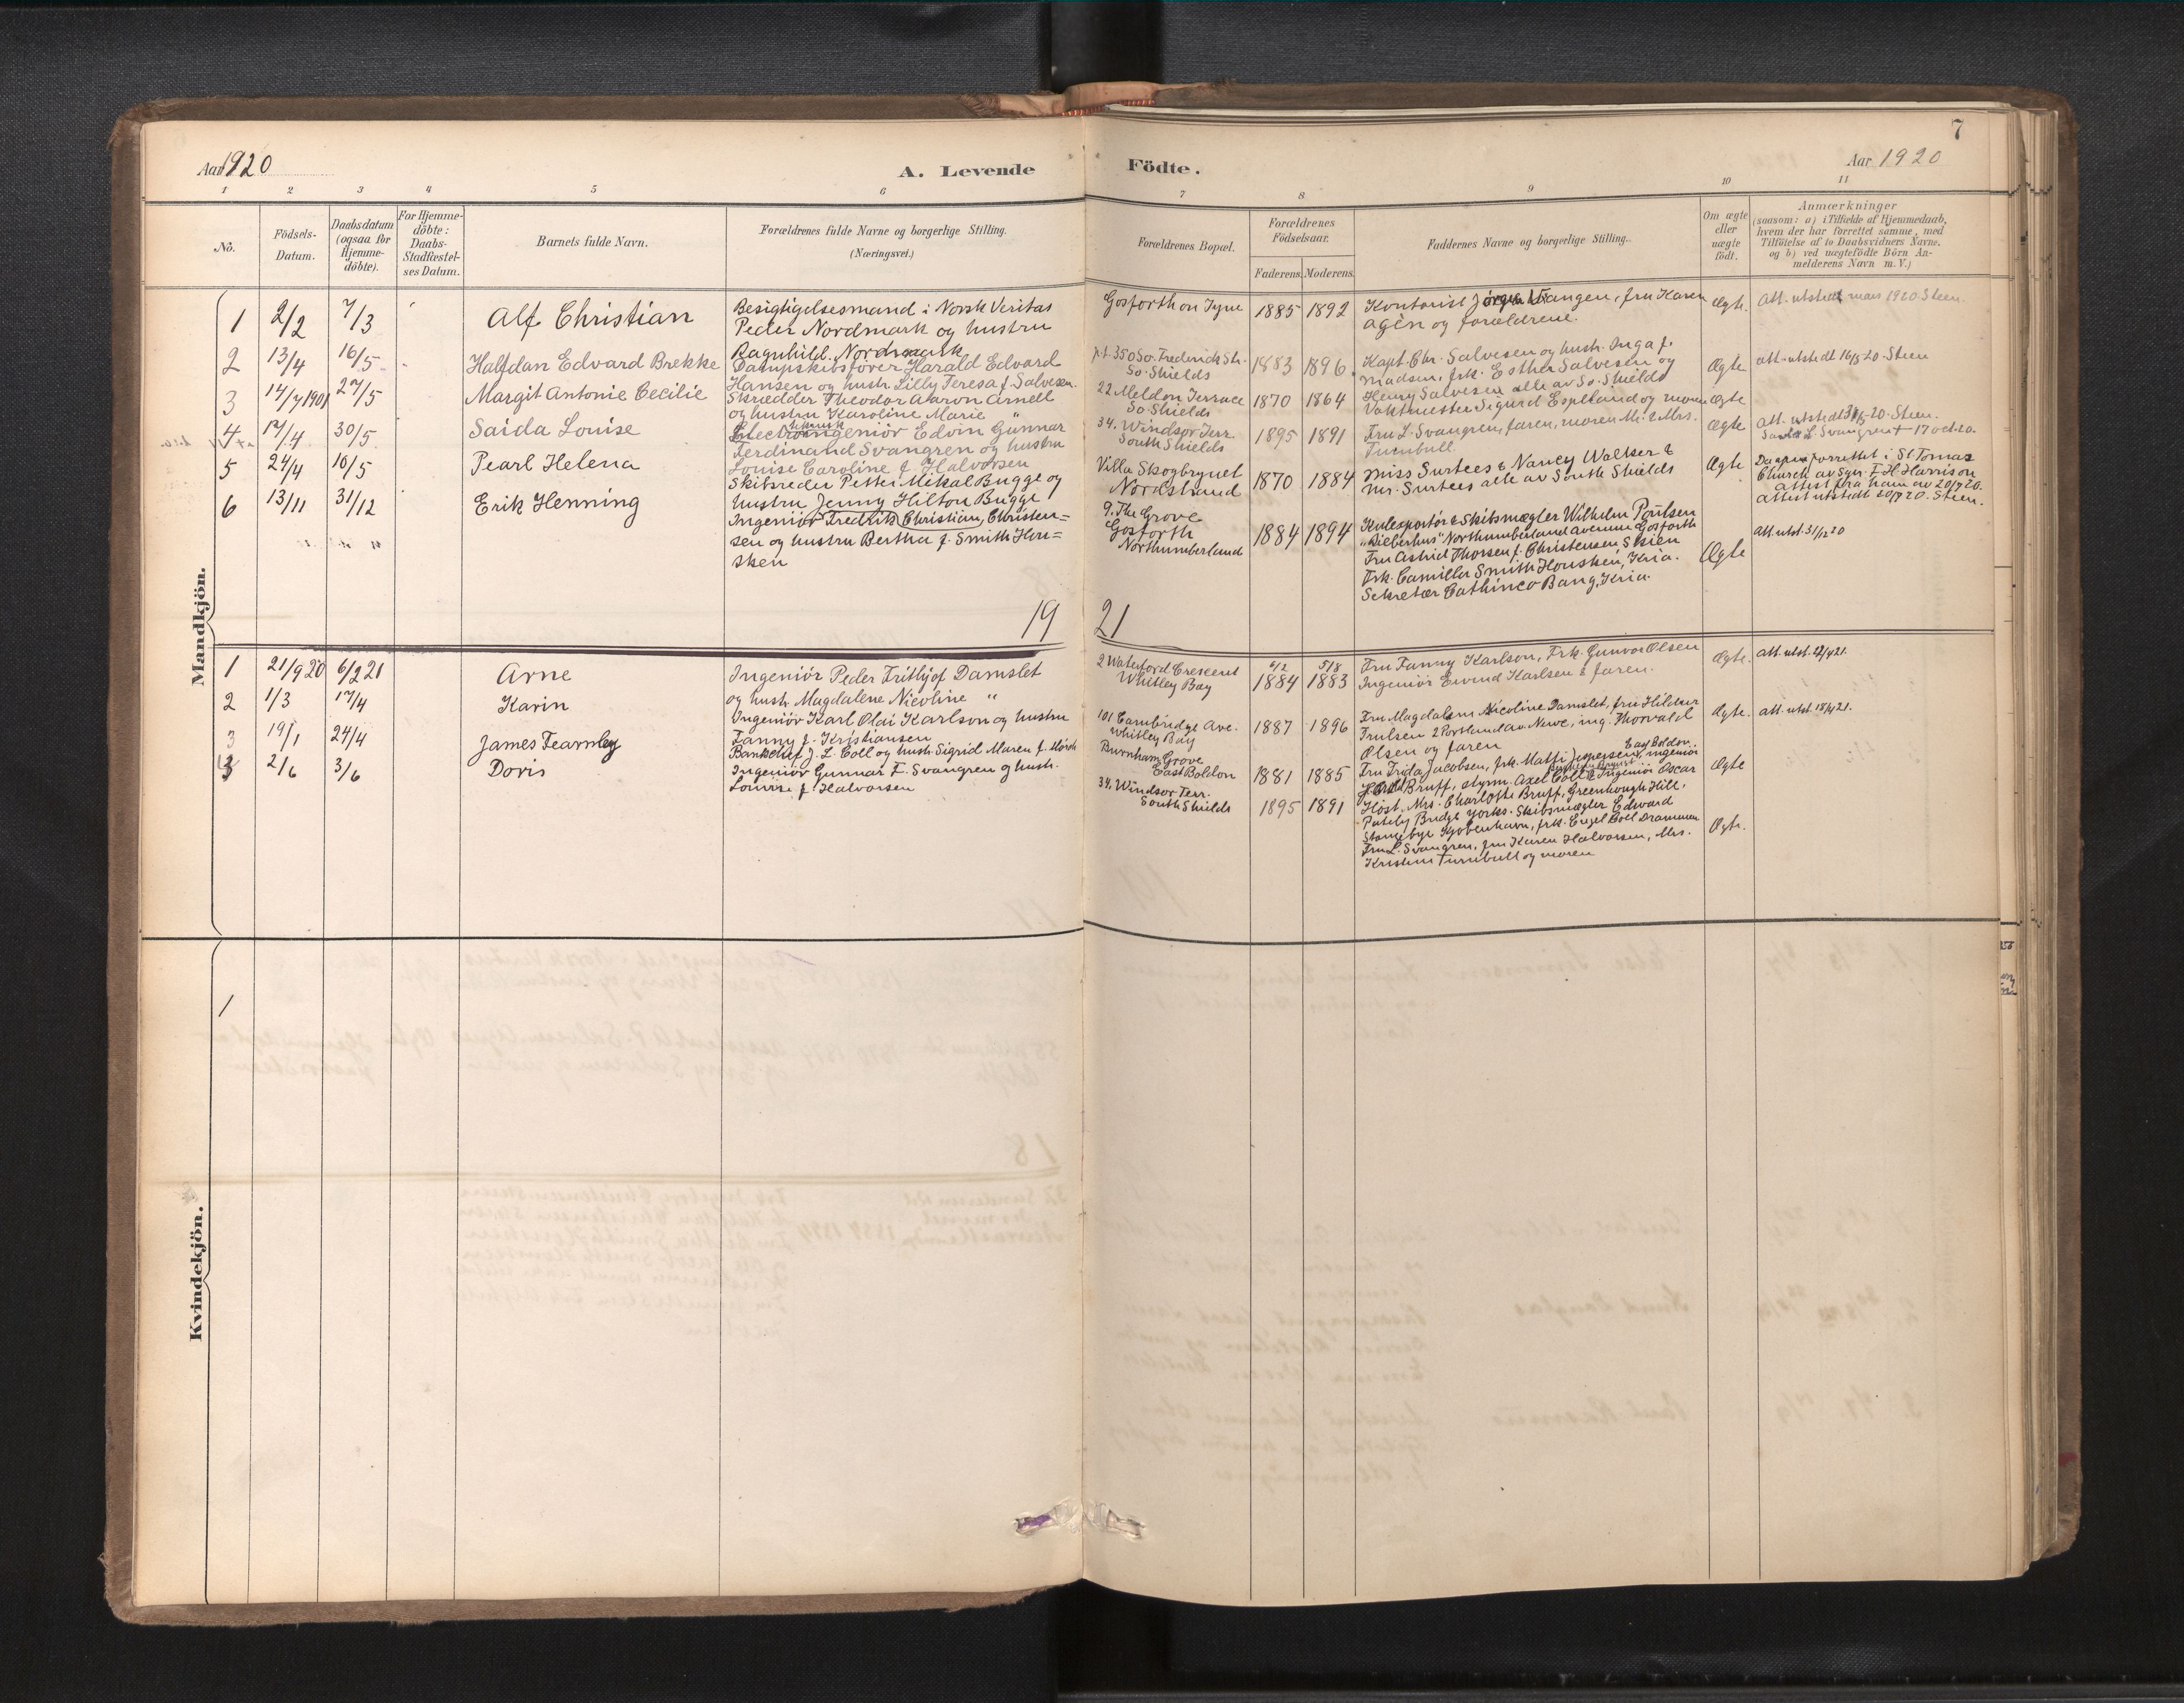 Aar 1920
A. Levende
Födte.
Aar 1920
7
1 2 3 4 5 6 7 8 9 10 11
No.
Födsels-
Datum.
Daabsdatum
(ogsaa for
Hjemme-
döbte).
For Hjemme-
döbte:
Daabs-
Stadfæstel-
ses Datum.
Barnets fulde Navn.
Forældrenes fulde Navne og borgerlige Stilling.
(Næringsvei.)
Forældrenes Bopæl.
Forældrenes
Födselsaar.
Faderens. Moderens.
Faddernes Navne og borgerlige Stilling.
Om ægte
eller
uægte
födt.
Anmærkninger
(saasom: a) i Tilfælde af Hjemmedaab,
hvem der har forrettet samme, med
Tilföielse af to Daabsvidners Navne.
og b) ved uægtefödte Börn An-
melderens Navn m. V.)
Mandkjön.
1 2/2 7/3 Alf Christian
Besigtigelsesmand i Norsk Veritas
Peder Nordmark og hustru
Ragnhild Nordmark
Gosforth on Tyne 1885 1892
Kontorist Jörgen Vangen, fru Karen
Agên og forældrene.
Ægte. Att. utstedt mars 1920 Steen
2 13/4 16/5 Halfdan Edvard Brekke
Dampskibsförer Harald Edvard
Hansen og hustr. Lilly Teresa f. Salvesen.
p.t. 350 So. Frederick Str.
So. Shields
1883 1896
Kapt. Chr. Salvesen og hustr. Inga f.
Madsen, frk. Esther Salvesen og
Henry Salvesen alle av So. Shields
Ægte att. utstedt 16/5 20. Steen
3 14/7 1901 27/5 Margit Antonie Cecilie
Skrædder Theodor Aaron Arnell
og hustru Karoline Marie "
22 Meldon Terrace
So. Shields
1870 1864
Vaktmester Sigurd Espeland og moren
Ægte
4 17/4 30/5 Saida Louise
Electroingeniör Edvin Gunnar
Ferdinand Svangren og hustru
Louise Caroline f. Halvorsen
34. Windsor Terr.
South Shields
1895 1891
Fru L. Svangren, faren, moren Mr. & Mrs.
Turnbull
Ægte att. utstedt 31/5-20. Steen.
L. Svangren † 17 oct. 20.
5 24/4 16/5 Pearl Helena
Skibsreder Petter Mikal Bugge og
hustru Jenny Hilton Bugge
Villa Skogbrynet
Nordstrand
1870 1884
Miss Surtees & Nancy Walker &
Mr. Surtees alle av South Shields
Ægte
Daapen forrettet i St Tomas
Church av Sgr. F. H. Harrison
attest fra ham av 20/7 20.
attest utstedt 20/7 20. Steen.
6 13/11 31/12 Erik Henning
Ingeniör Fredrik Christian Christen=
sen og hustru Bertha f. Smith Hou=
sken
9. The Grove
Gosforth
Northumberland
1884 1894
Kulexportör & Skibsmægler Wilhelm Poulsen
"Lieberhus" Northumberland Avenue Gosforth
Fru Astrid Thorsen f. Christensen Skien
Frk. Camilla Smith Housken, Kria.
Sekretær Cathinco Bang, Kria.
Ægte att. utst. 31/12 20
19 21
1 21/9 20 6/2 21 Arne
Ingeniör Peder Frithjof Damslet
og hustr. Magdalene Nicoline "
2 Waterford Crescent
Whitley Bay
4/2 1884 5/8 1883
Fru Fanny Karlson, Frk. Gunvor Olsen
Ingeniör Eivind Karlsen & faren.
Ægte. att. utst. 22/4 21.
2 1/3 17/4 Karin
Ingeniör Karl Olai Karlson og hustru
Fanny f. Kristiansen
101 Cambridge Ave.
Whitley Bay
1887 1896
Fru Magdalene Nicoline Damslet, fru Hildur
Trulsen 2 Portland av. Newc, ing. Thorvald
Olsen og faren
Ægte. att. utst. 18/4 21.
3 19/1 24/4 James Fearnley
Bankchef J. L. Coll og hustr. Sigrid Maren f. Mörch
Burnham Grove
East Boldon
1881 1885
Fru Frida Jacobsen, frk. Matfi Jespersen, East Boldon. ingeniör
Bruff, styrm. Axel Coll & Ingeniör Oscar
Höst. Mrs. Charlotte Bruff, Greenhough Hill,
Pately Bridge Yorks. Skibsmægler Edward
Stangebye Kjöbenhavn, frk. Engel Coll Drammen
Ægte
3 2/6 3/6 Doris
Ingeniör Gunnar F. Svangren og hustr.
Louise f. Halvorsen
34. Windsor Terr.
South Shields
1895 1891
Fru L. Svangren, fru Karen Halvorsen, Mrs.
Kristine Turnbull og moren
Ægte.
Kvindekjön.
1